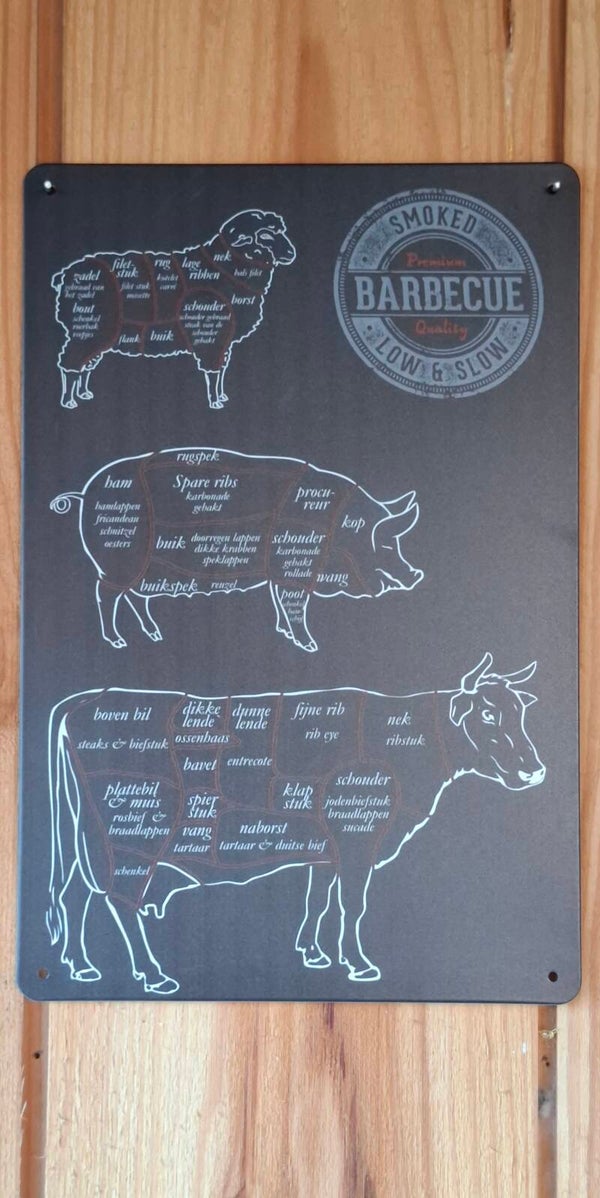 SMOKED
Premium
BARBECUE
Quality
LOW & SLOW
zadel
gebraad van
het zadel
bout
schenkel
filet-
stuk
filet stuk
noisette
rug
lage
ribben
nek
hals filet
borst
schouder
schouder gebraad
steak van de
schouder
gehakt
flank
buik
rugspek
ham
hamlappen
fricandeau
schnitzel
oesters
Spare ribs
karbonade
gehakt
procu-
reur
kop
buik
doorregen lappen
dikke krabben
speklappen
schouder
karbonade
gehakt
rollade
wang
buikspek
reuzel
poot
boven bil
steaks & biefstuk
dikke
lende
ossenhaas
dunne
lende
fijne rib
rib eye
nek
ribstuk
bavet
entrecote
plattebil
& muis
rosbief &
braadlappen
spier
stuk
klap
stuk
schouder
jodenbiefstuk
braadlappen
sucade
vang
tartaar
naborst
tartaar & duitse bief
schenkel